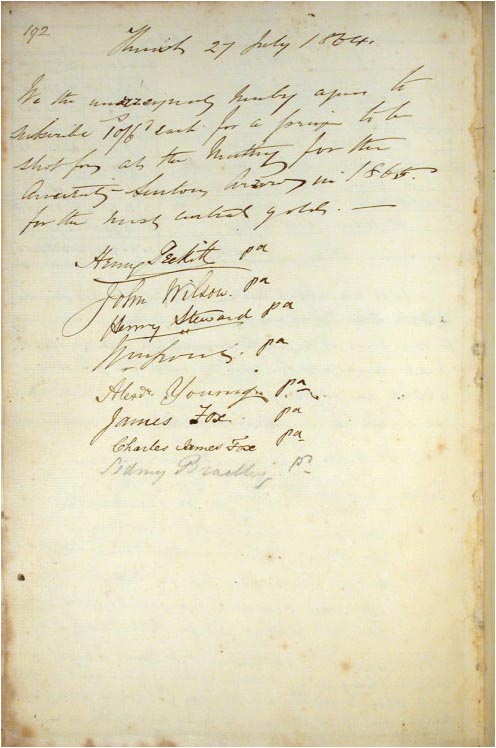 192
Thirsk 27 July 1864.
We the undersigned hereby agree to
subscribe 10/6d each for a prize to be
shot for at the Meeting for the
Ancient Scorton Arrow in 1865.
for the most central golds. —
Henry Peckitt pd
John Wilson. pd
Henry Steward pd
pd
Alexdr Younger pd
James Fox. pd
Charles James Fox pd
Sidney pd